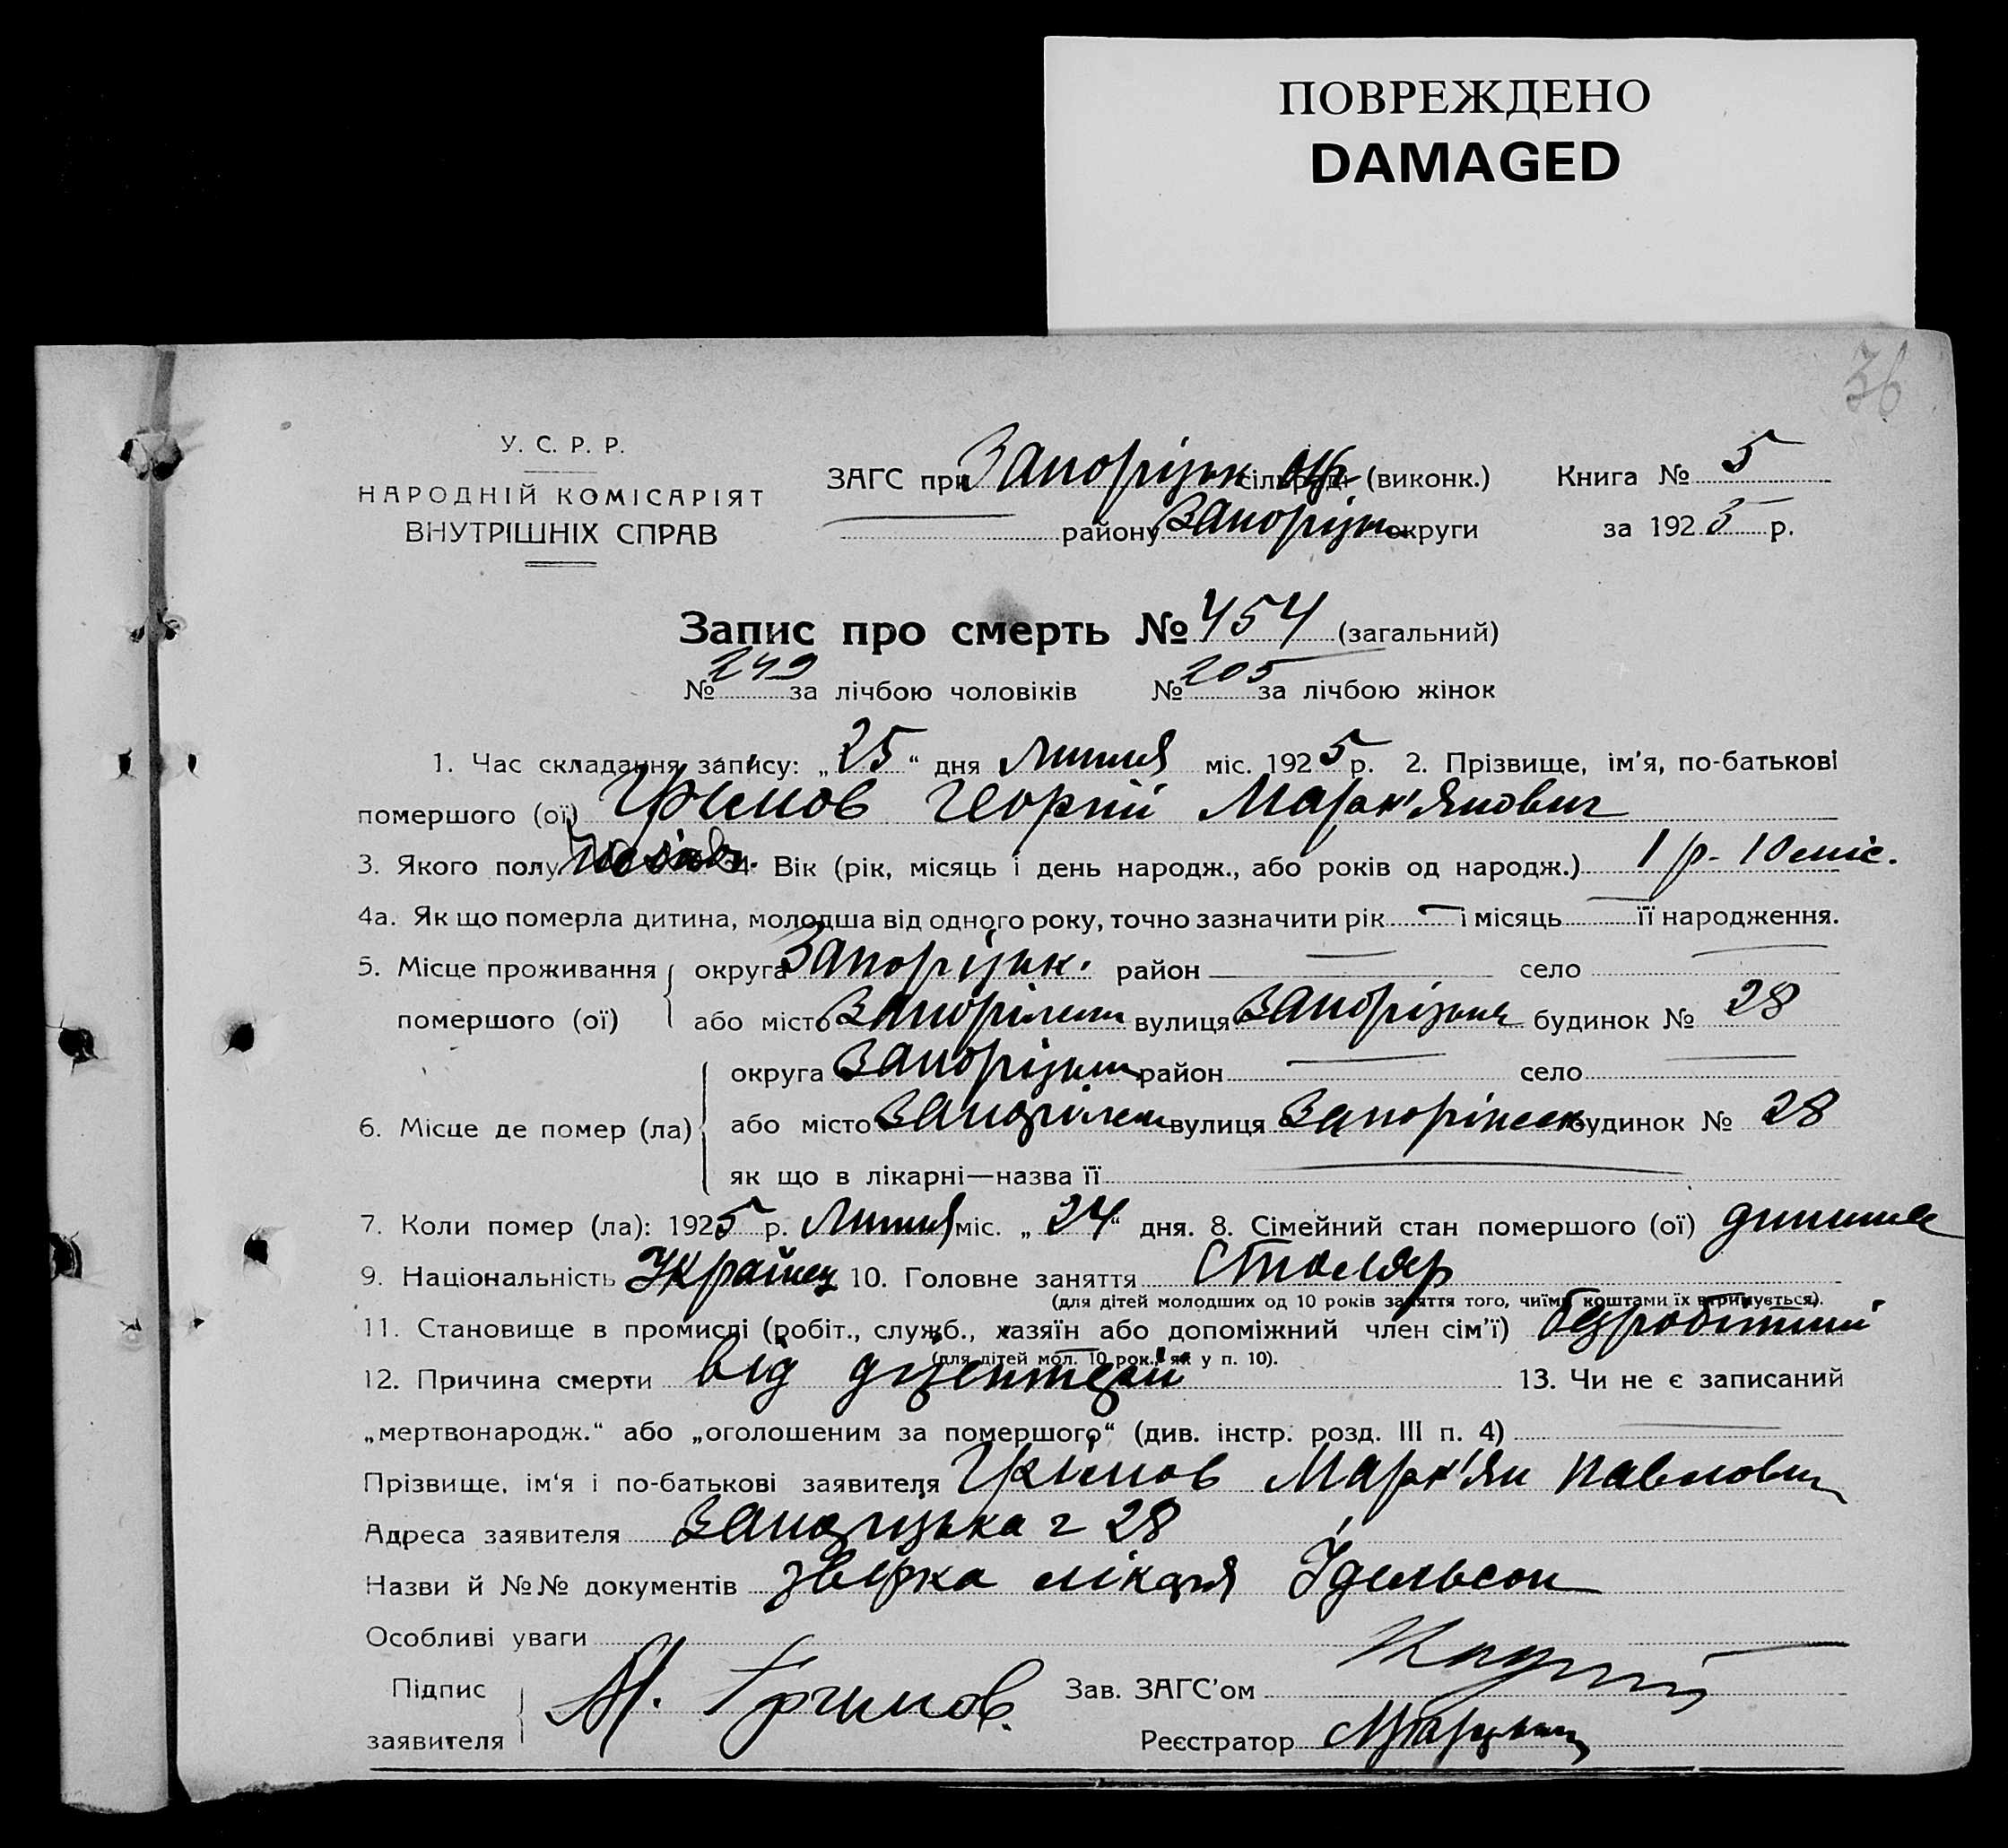 ПОВРЕЖДЕНО
DAMAGED
36
У. С. Р. Р.
НАРОДНІЙ КОМІСАРІЯТ
ВНУТРІШНІХ СПРАВ
ЗАГС при Запорізьк сільраді (виконк.)
району Запорізьк округи
Книга № 5
за 1925 р.
Запис про смерть № 454 (загальний)
№ 249 за лічбою чоловіків № 205 за лічбою жінок
1. Час складання запису: „25“ дня Липня міс. 1925 р. 2. Прізвище, ім'я, по-батькові
помершого (ої) Грімов Георгій Марк'янович
3. Якого полу 4. Вік (рік, місяць і день народж., або років од народж.) 1 р. 10 міс.
4а. Як що померла дитина, молодша від одного року, точно зазначити рік — і місяць — її народження.
5. Місце проживання помершого (ої) округа Запорізьк. район — село —
або місто Запоріжжя вулиця Запорізька будинок № 28
6. Місце де помер (ла) округа Запорізька район — село —
або місто Запоріжжя вулиця Запоріжськ будинок № 28
як що в лікарні—назва її —
7. Коли помер (ла): 1925 р. Липня міс. „24“ дня. 8. Сімейний стан помершого (ої) дитина
9. Національність Українец 10. Головне заняття Столяр
(для дітей молодших од 10 років заняття того, чиїми коштами їх втримується).
11. Становище в промислі (робіт., служб., хазяїн або допоміжний член сім'ї) безробітний
(для дітей мол. 10 рок., як у п. 10).
12. Причина смерти від дизентерії 13. Чи не є записаний
„мертвонародж.“ або „оголошеним за помершого“ (див. інстр. розд. III п. 4) —
Прізвище, ім'я і по-батькові заявителя Грімов Марк'ян Павлович
Адреса заявителя Запорізька 28
Назви й №№ документів лікаря Ідельсон
Особливі уваги
Підпис заявителя М. Грімов.
Зав. ЗАГС'ом
Реєстратор